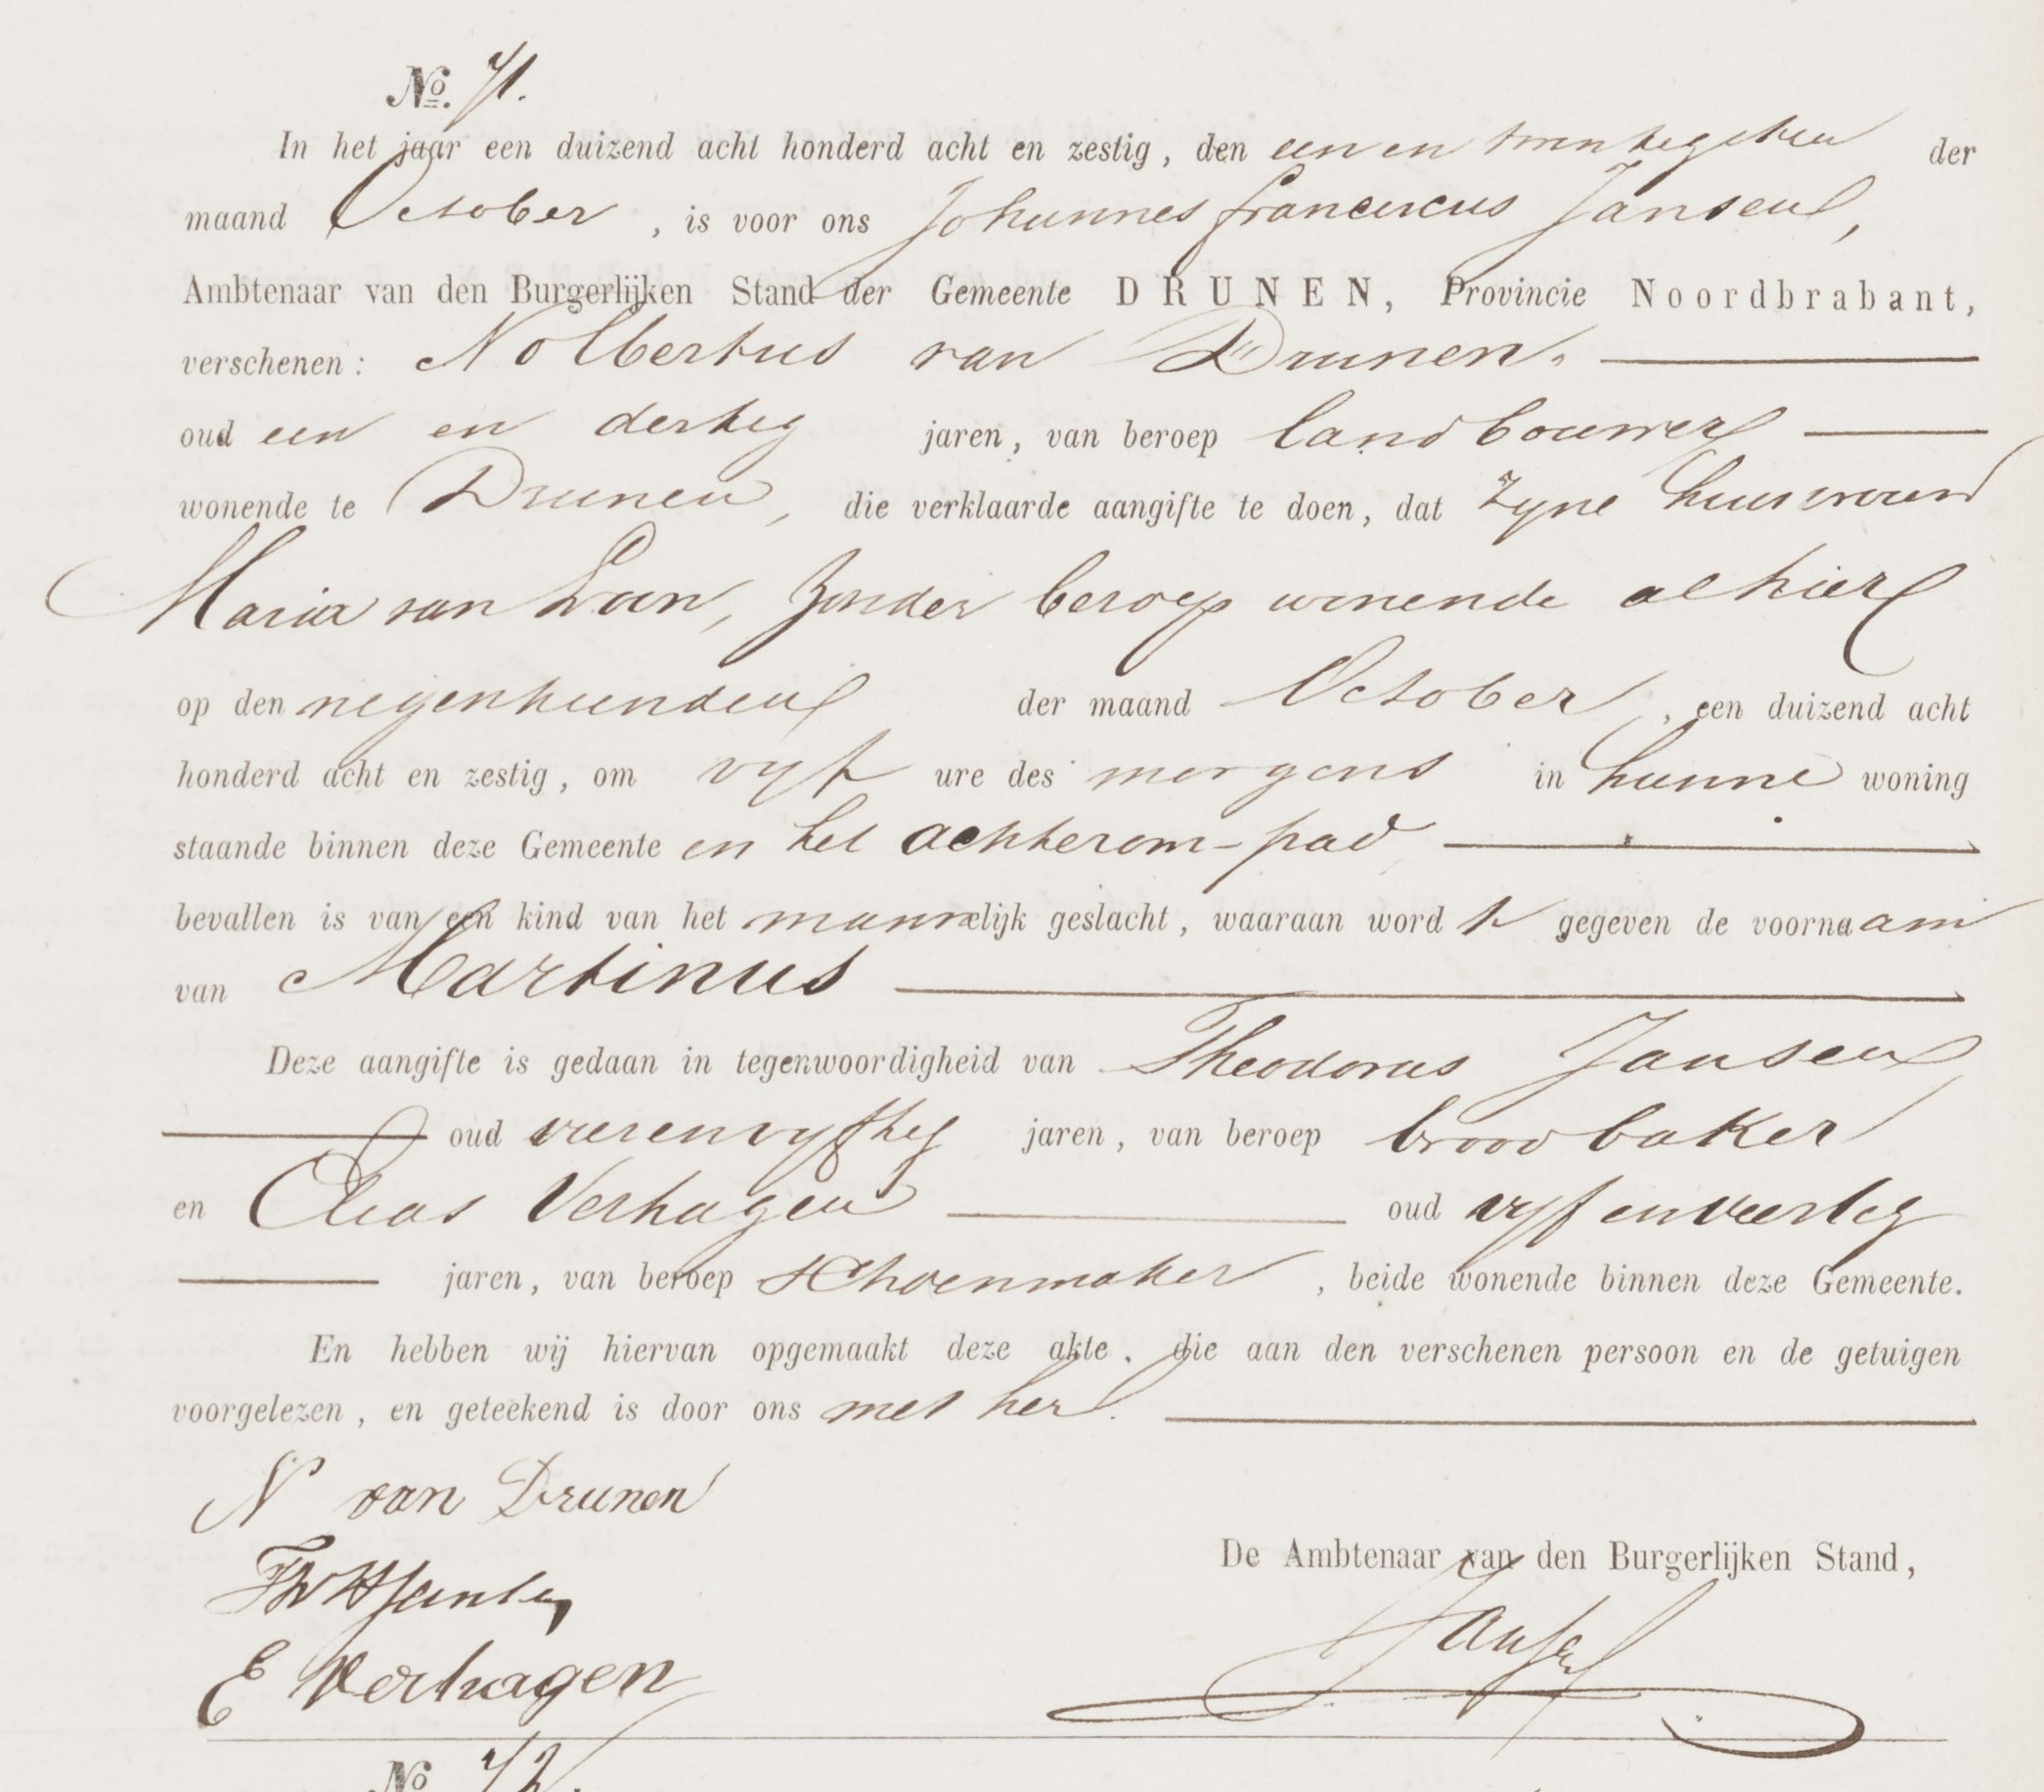 No. 71.
In het jaar een duizend acht honderd acht en zestig, den een en twintigsten der
maand October, is voor ons Johannes franciscus Jansen,
Ambtenaar van den Burgerlijken Stand der Gemeente DRUNEN, Provincie Noordbrabant,
verschenen: Nolbertus van Drunen.
oud een en dertig jaren, van beroep landbouwer
wonende te Drunen, die verklaarde aangifte te doen, dat zyne huisvrouw
Maria van Loon, zonder beroep wonende alhier
op den negentienden der maand October, een duizend acht
honderd acht en zestig, om vyf ure des morgens in hunne woning
staande binnen deze Gemeente en het achterom-pad
bevallen is van een kind van het mannelijk geslacht, waaraan wordt gegeven de voornaam
van Martinus
Deze aangifte is gedaan in tegenwoordigheid van Theodorus Jansen
oud vierenvyftig jaren, van beroep broodbaker
en Elias Verhagen oud vyf en veertig
jaren, van beroep schoenmaker, beide wonende binnen deze Gemeente.
En hebben wij hiervan opgemaakt deze akte, die aan den verschenen persoon en de getuigen
voorgelezen, en geteekend is door ons met hen.
N van Drunen
De Ambtenaar van den Burgerlijken Stand,
Jansen
E Verhagen
No 72.